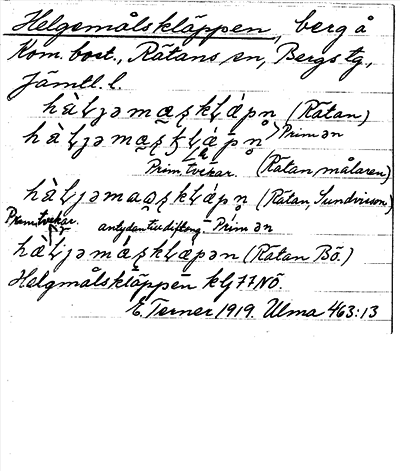 Helgemålskläppen, berg å
Kom. bost., Rätans sn, Bergs tg,
Jämtl. l.
hàl̡jəmæʂkĻǽpn̥ (Rätan)
hàl̡jəmæʂkĻǽpn̥ > Prim ən
Prim. tvekar. (Rätan, målaren)
hàl̡jəmaəʂkĻǽpn (Rätan, Sundvisson)
Prim. tvekar. antydan till diftong. Prim ən
hàl̡jəmáʂkĻæpən (Rätan Bö.)
Helgmålskläppen kbl 77 NÖ.
E. Terner 1919. Ulma 463:13